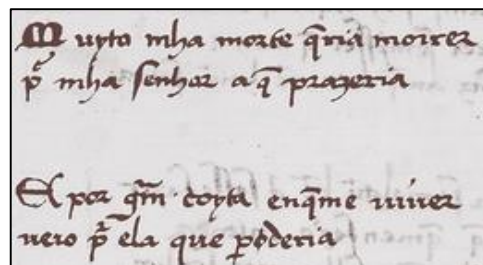 M uyto mha morte q̃ria moirer
p̃ mha senhor a q̃ prazeria
E por gr̃m coyta enq̃me uiuer
ueio p̃ ela que p̃deria